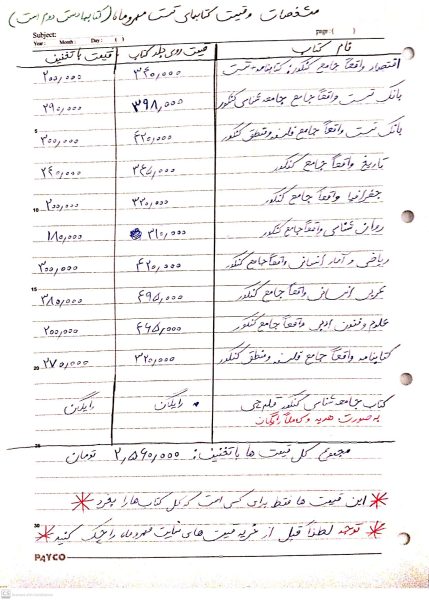 مشخصات و قیمت کتابهای تست مهروماه (کتابها دست دوم است)
Subject:
Year: Month: Day: ( )
page: ( )
نام کتاب قیمت روی جلد کتاب قیمت با تخفیف
اقتصاد واقعاً جامع کنکور: کتابنامه تست ۳۴۰,۰۰۰ ۲۰۰,۰۰۰
بانک تست واقعاً جامع جامعه شناسی کنکور ۳۹۸,۰۰۰ ۲۹۰,۰۰۰
بانک تست واقعاً جامع فلسفه و منطق کنکور ۴۲۰,۰۰۰ ۳۰۰,۰۰۰
تاریخ واقعاً جامع کنکور ۳۴۵,۰۰۰ ۲۴۰,۰۰۰
جغرافیا واقعاً جامع کنکور ۳۲۰,۰۰۰ ۲۰۰,۰۰۰
روان شناسی واقعاً جامع کنکور ۳۱۰,۰۰۰ ۱۸۰,۰۰۰
ریاضی و آمار انسانی واقعاً جامع کنکور ۴۲۰,۰۰۰ ۳۰۰,۰۰۰
عربی انسانی واقعاً جامع کنکور ۴۹۵,۰۰۰ ۳۸۰,۰۰۰
علوم و فنون ادبی واقعاً جامع کنکور ۴۶۵,۰۰۰ ۲۰۰,۰۰۰
کتابنامه واقعاً جامع فلسفه و منطق کنکور ۳۲۰,۰۰۰ ۲۷۰,۰۰۰
کتاب جامعه شناسی کنکور قلم چی رایگان رایگان
به صورت هدیه و کاملاً رایگان
مجموع کل قیمت ها با تخفیف: ۲,۵۶۰,۰۰۰ تومان
این قیمت ها فقط برای کسی است که کل کتاب ها را بخرد
توجه لطفاً قبل از خرید قیمت های سایت مهروماه را چک کنید
5
10
15
20
25
30
PAPCO
CS